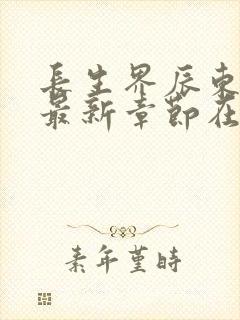 長生界辰東
最新章節在
素年堇時